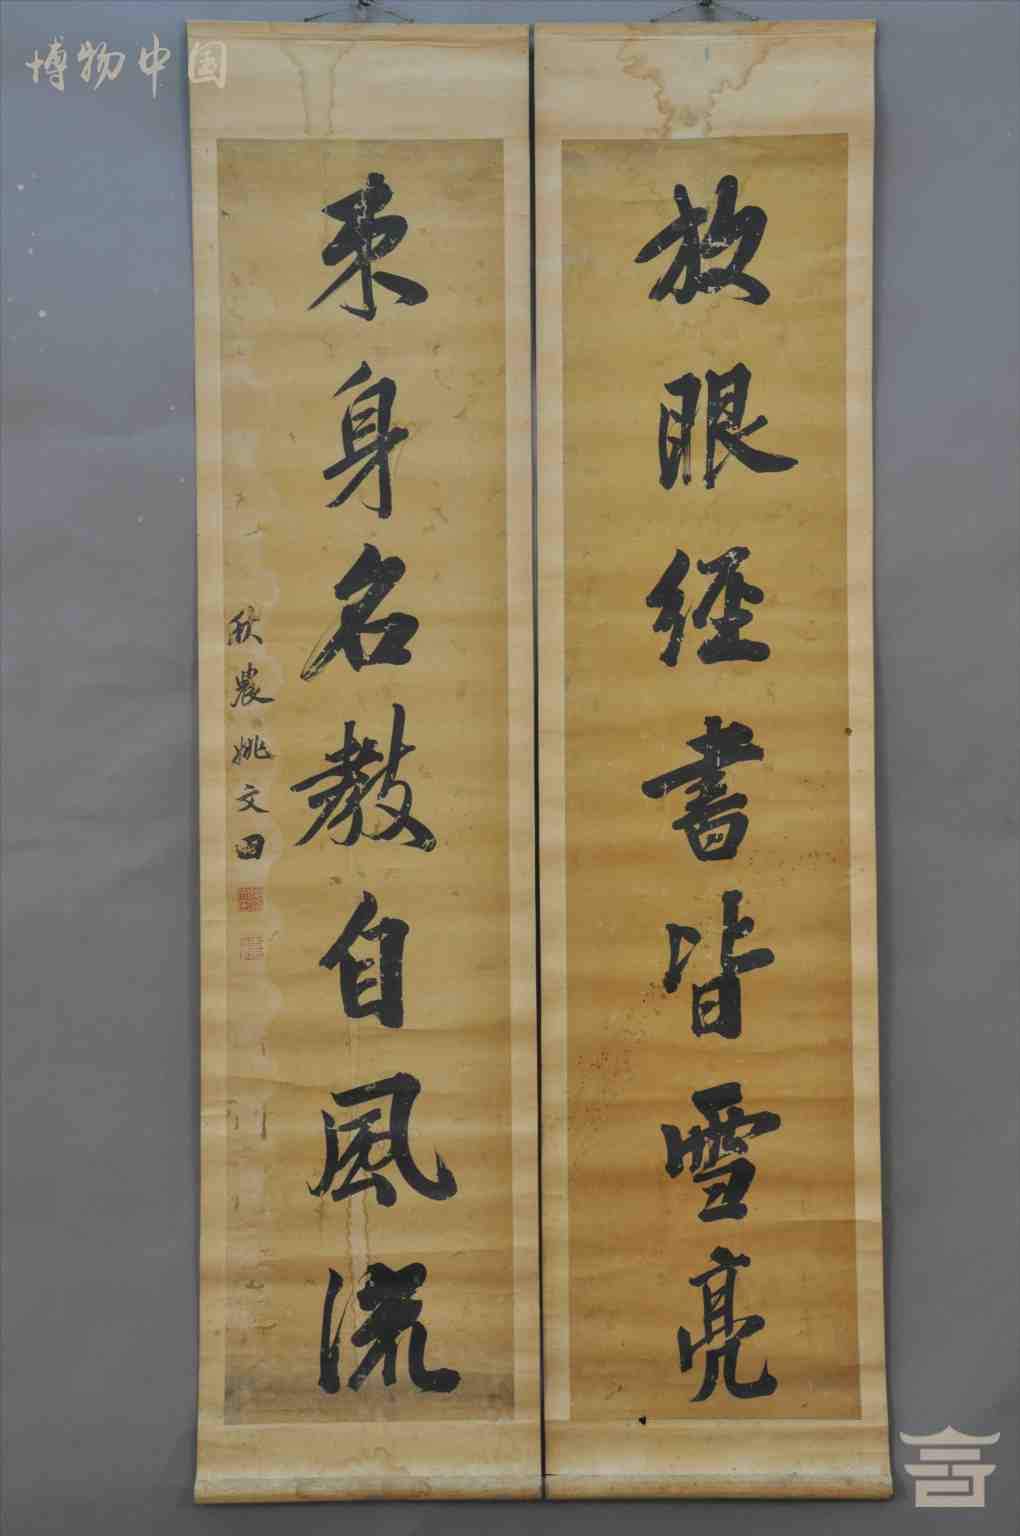 博物中国
放眼經書皆雪亮
束身名教自風流
秋農姚文田